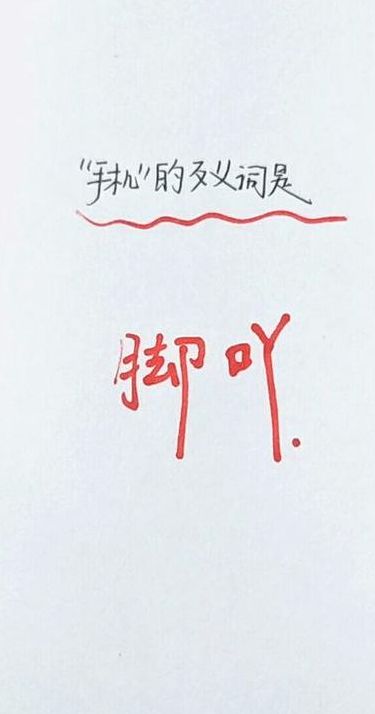 “手机”的反义词是
脚吖.